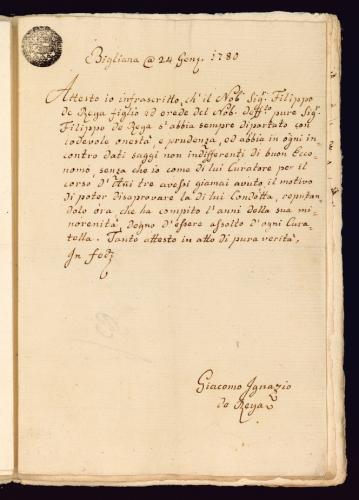 Bigliana @ 24 Genʳ. 1780
Attesto io infrascritto, ch'il Nob: Sig:ʳ Filippo
de Reya figlio ed erede del Nob: Deff:ᵗᵒ pure Sig:ʳ
Filippo de Reya s'abbia sempre diportato con
lodevole onestà, e prudenza, ed abbia in ogni in-
contro dati saggi non indifferenti di buon Eco-
nomo, senza che io come di lui Curatore per il
corso d'Anni tre avessi giamai avuto il motivo
di poter disaprovare la di lui Condotta, reputan-
dolo ora che ha compito l'anni della sua mi-
norenità, degno d'essere assolto d'ogni Cura-
tella. Tanto attesto in atto di pura verità,
In fede
Giacomo Ignazio
de Reya